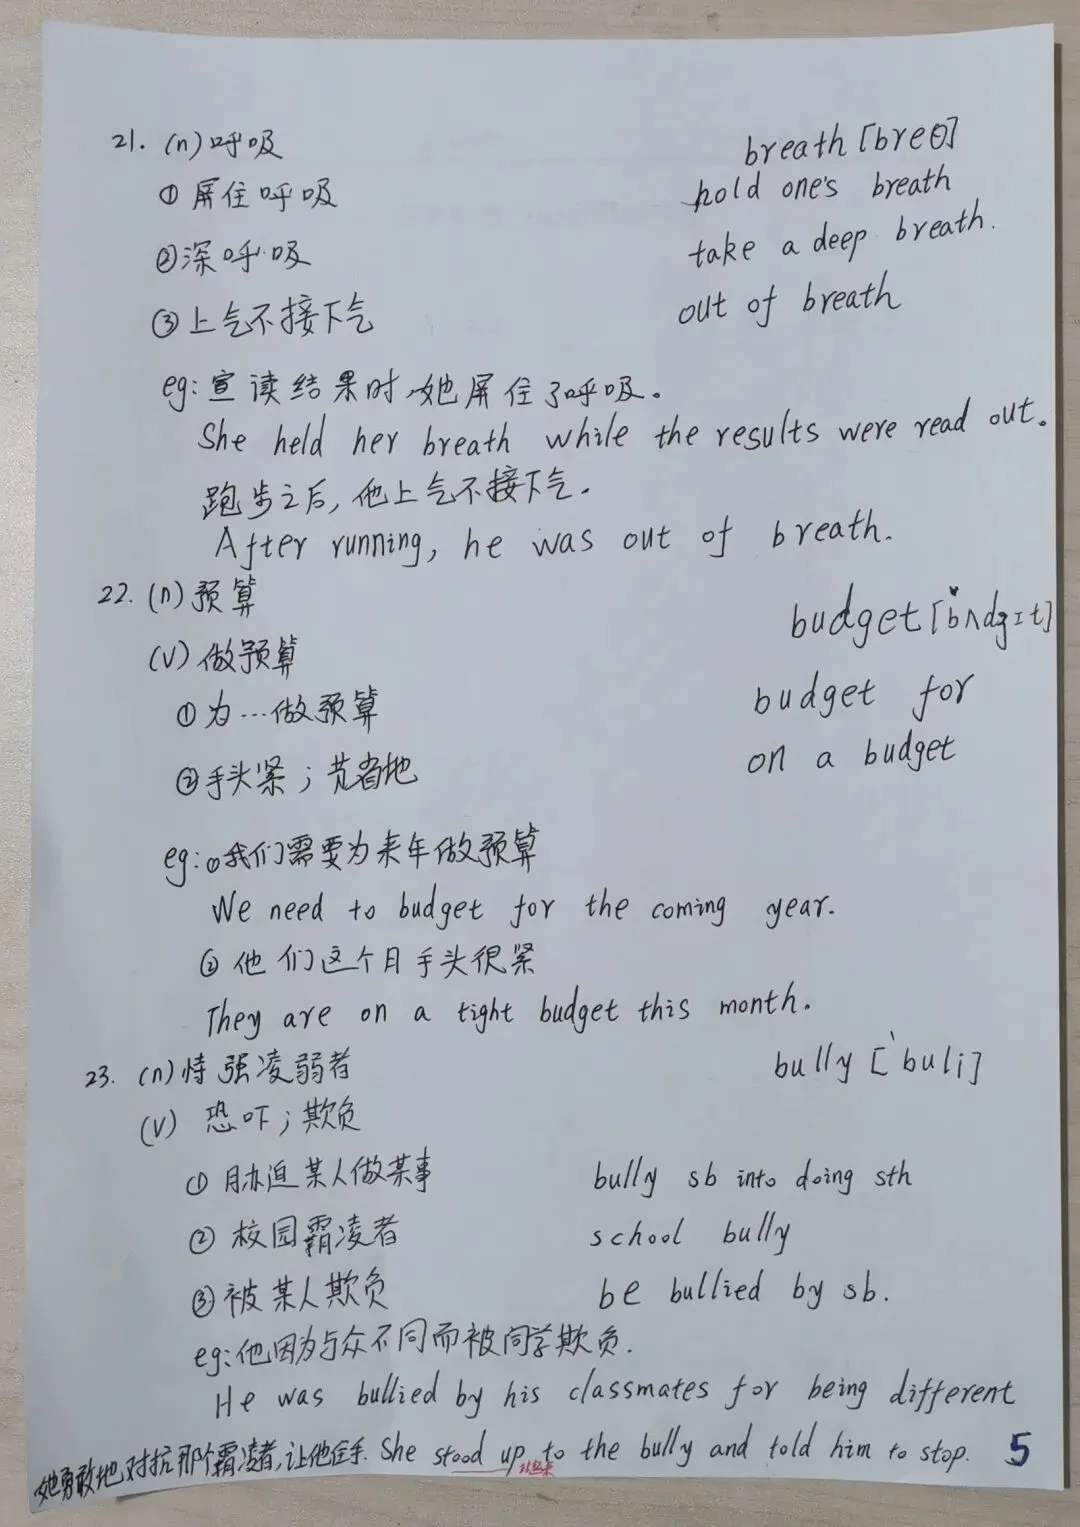 21. (n)呼吸 breath [breθ]
① 屏住呼吸 hold one's breath
②深呼吸 take a deep breath.
③上气不接下气 out of breath
eg: 宣读结果时,她屏住了呼吸。
She held her breath while the results were read out.
跑步之后,他上气不接下气.
After running, he was out of breath.
22. (n)预算 budget ['bʌdʒɪt]
(V) 做预算
①为…做预算 budget for
②手头紧;节省地 on a budget
eg:①我们需要为来年做预算
We need to budget for the coming year.
② 他们这个月手头很紧
They are on a tight budget this month.
23. (n)恃强凌弱者 bully ['buli]
(V) 恐吓;欺负
① 胁迫某人做某事 bully sb into doing sth
② 校园霸凌者 school bully
③ 被某人欺负 be bullied by sb.
eg:他因为与众不同而被同学欺负.
He was bullied by his classmates for being different
她勇敢地对抗那个霸凌者,让他住手. She stood up to the bully and told him to stop. 5